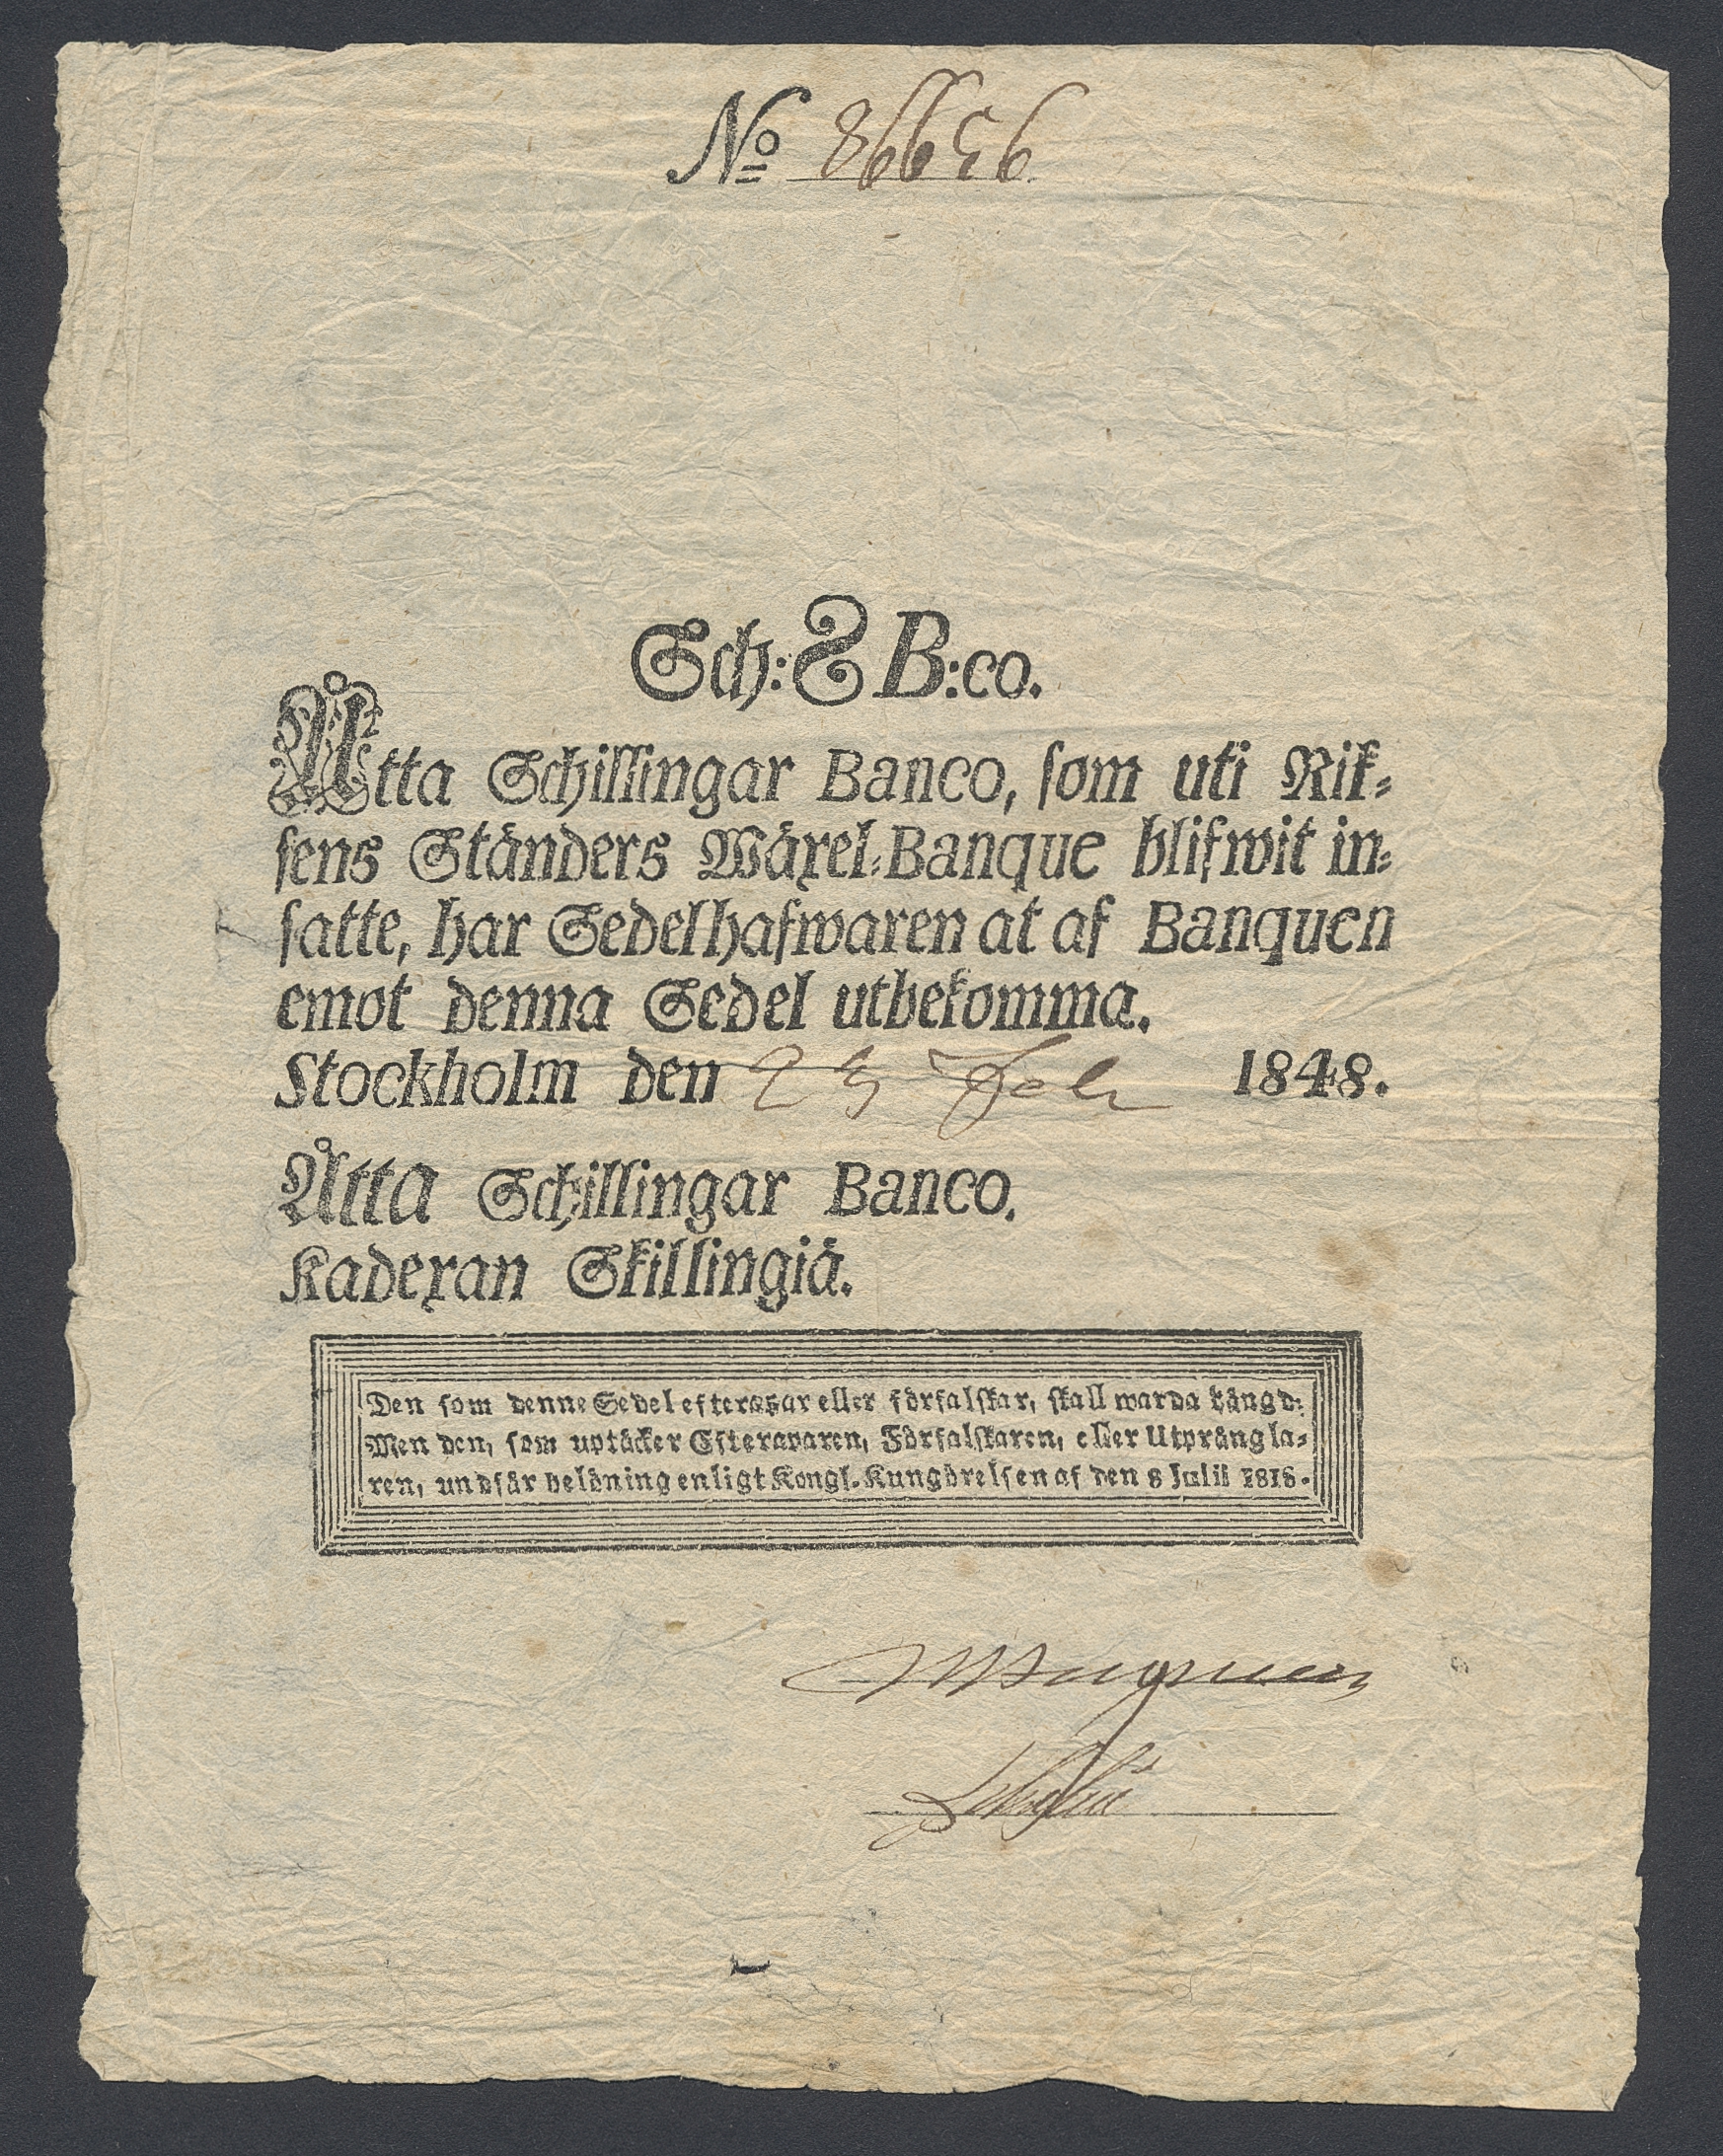 No 86656
Sch: 8 B:co.
Åtta Schillingar Banco, som uti Rik=
sens Ständers Wäxel=Banque blifwit in=
satte, har Sedelhafwaren at af Banquen
emot denna Sedel utbekomma.
Stockholm den 23 Feb 1848.
Åtta Schillingar Banco.
Kadexan Skillingiä.
Den som denne Sedel efterapar eller förfalskar, skall warda hängd:
Men den, som uptäcker Efteraparen, Förfalskaren, eller Utprängla=
ren, undfår belöning enligt Kongl. Kungörelsen af den 8 Julii 1818.